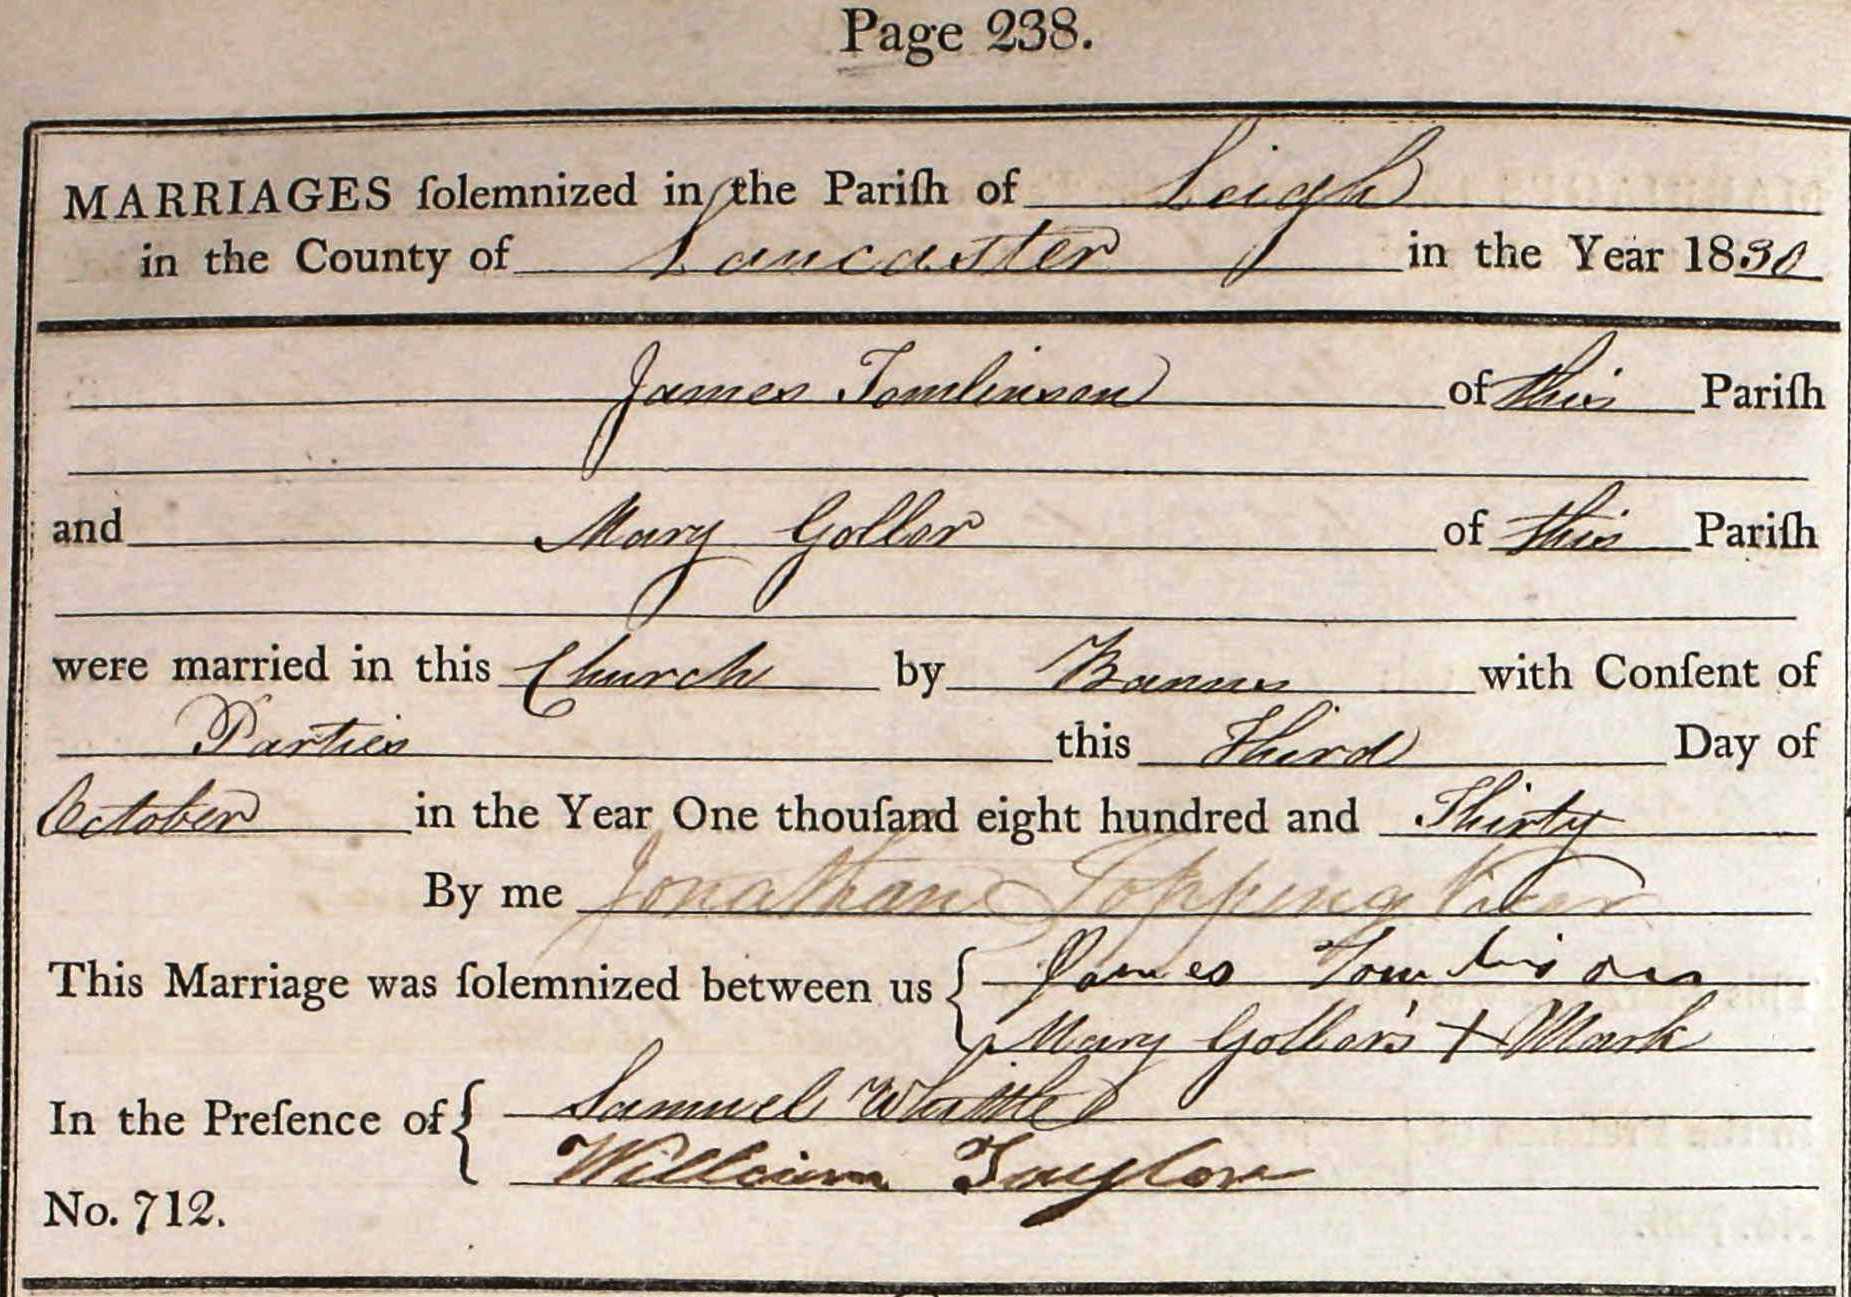 Page 238.
MARRIAGES ſolemnized in the Pariſh of Leigh
in the County of Lancaster in the Year 1830
James Tomlinson of this Pariſh
and Mary Goller of this Pariſh
were married in this Church by Banns with Conſent of
Parties this Third Day of
October in the Year One thouſand eight hundred and Thirty
By me Jonathan Topping Vicar
This Marriage was ſolemnized between us { James Tomlinson
Mary Goller's + Mark
In the Preſence of { Samuel Whittle
William Taylor
No. 712.